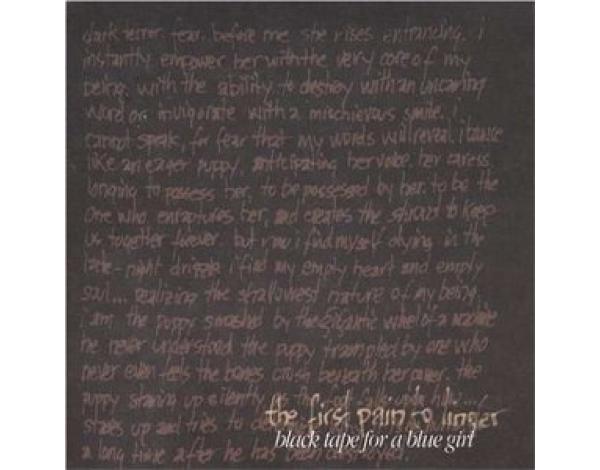 dark terror. fear. before me she rises entrancing. i
instantly empower her with the very core of my
being. with the ability to destroy with an uncaring
word or invigorate with a mischievous smile. i
cannot speak, for fear that my words will reveal. i bounce
like an eager puppy, anticipating her voice. her caress.
longing to possess her. to be possessed by her. to be the
one who enraptures her, and creates the shroud to keep
us together forever. but now i find myself dying in the
late-night drizzle i find my empty heart and empty
soul... realizing the shallowest nature of my being.
i am the puppy smashed by the gigantic wheel of a machine
he never understood. the puppy trampled by one who
never even feels the bones crush beneath her power. the
puppy staring up silently
stares up and tries to
a long time after he has been destroyed.
the first pain to linger
black tape for a blue girl